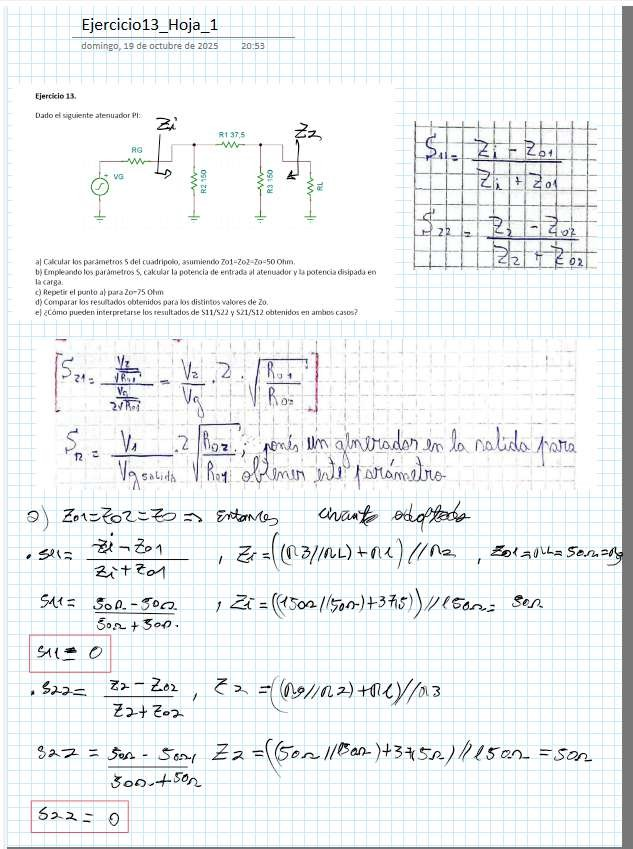 Ejercicio13_Hoja_1
domingo, 19 de octubre de 2025 20:53
Ejercicio 13.
Dado el siguiente atenuador PI:
Zi
Z2
R1 37,5
RG
VG
R2 150
R3 150
RL
S11 = Zi - Z01 / Zi + Z01
S22 = Z2 - Z02 / Z2 + Z02
a) Calcular los parámetros S del cuadripolo, asumiendo Zo1=Zo2=Zo=50 Ohm.
b) Empleando los parámetros S, calcular la potencia de entrada al atenuador y la potencia disipada en
la carga.
c) Repetir el punto a) para Zo=75 Ohm
d) Comparar los resultados obtenidos para los distintos valores de Zo.
e) ¿Cómo pueden interpretarse los resultados de S11/S22 y S21/S12 obtenidos en ambos casos?
[S21 = V2/√R01 / Vg/2√R01 = V2/Vg . 2 . √R01/R02]
S12 = V1/Vg salida . 2 √R02/R01 ; ponés un generador en la salida para
obtener este parámetro
a) Z01=Z02=Z0 => Entonces circuito adaptado
. S11 = Zi - Z01 / Zi + Z01 , Zi = ((R3//RL)+R1)//R2 , Z01=RL=50Ω=Rg
S11 = 50Ω - 50Ω / 50Ω + 50Ω. , Zi = ((150Ω//50Ω)+37,5))//150Ω = 50Ω
S11 = 0
. S22 = Z2 - Z02 / Z2 + Z02 , Z2 = ((Rg//R2)+R1)//R3
S22 = 50Ω - 50Ω / 50Ω + 50Ω Z2 = ((50Ω//150Ω)+37,5Ω)//150Ω = 50Ω
S22 = 0